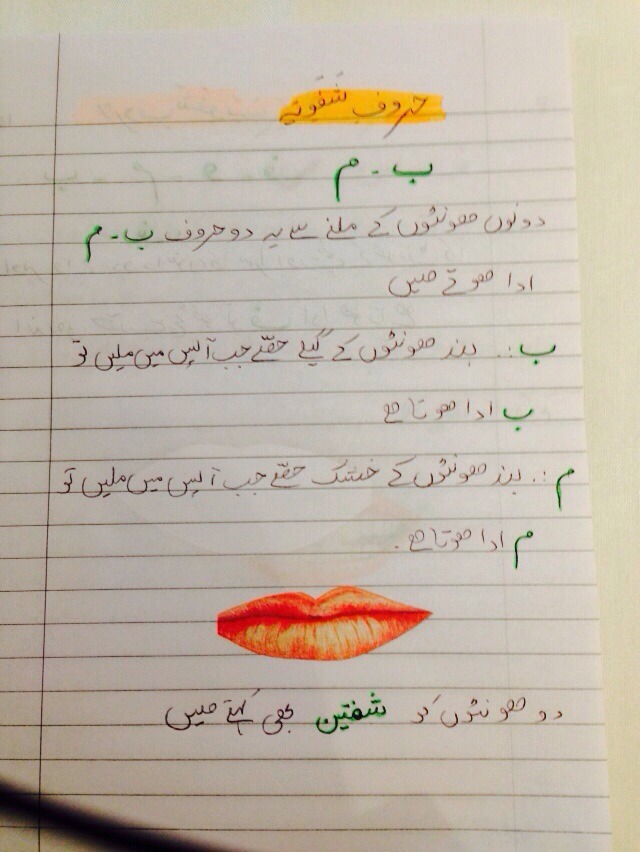 حروف شَفَوِیہ
ب - م
دونوں ھونٹوں کے ملنے سے یہ دو حروف ب - م
ادا ھوتے ھیں
ب :. بند ھونٹوں کے گیلے حصّے جب آپس میں ملیں تو
ب ادا ھوتا ھے
م :. بند ھونٹوں کے خشک حصّے جب آپس میں ملیں تو
م ادا ھوتا ھے .
دو ھونٹوں کو شفتین بھی کہتے ھیں